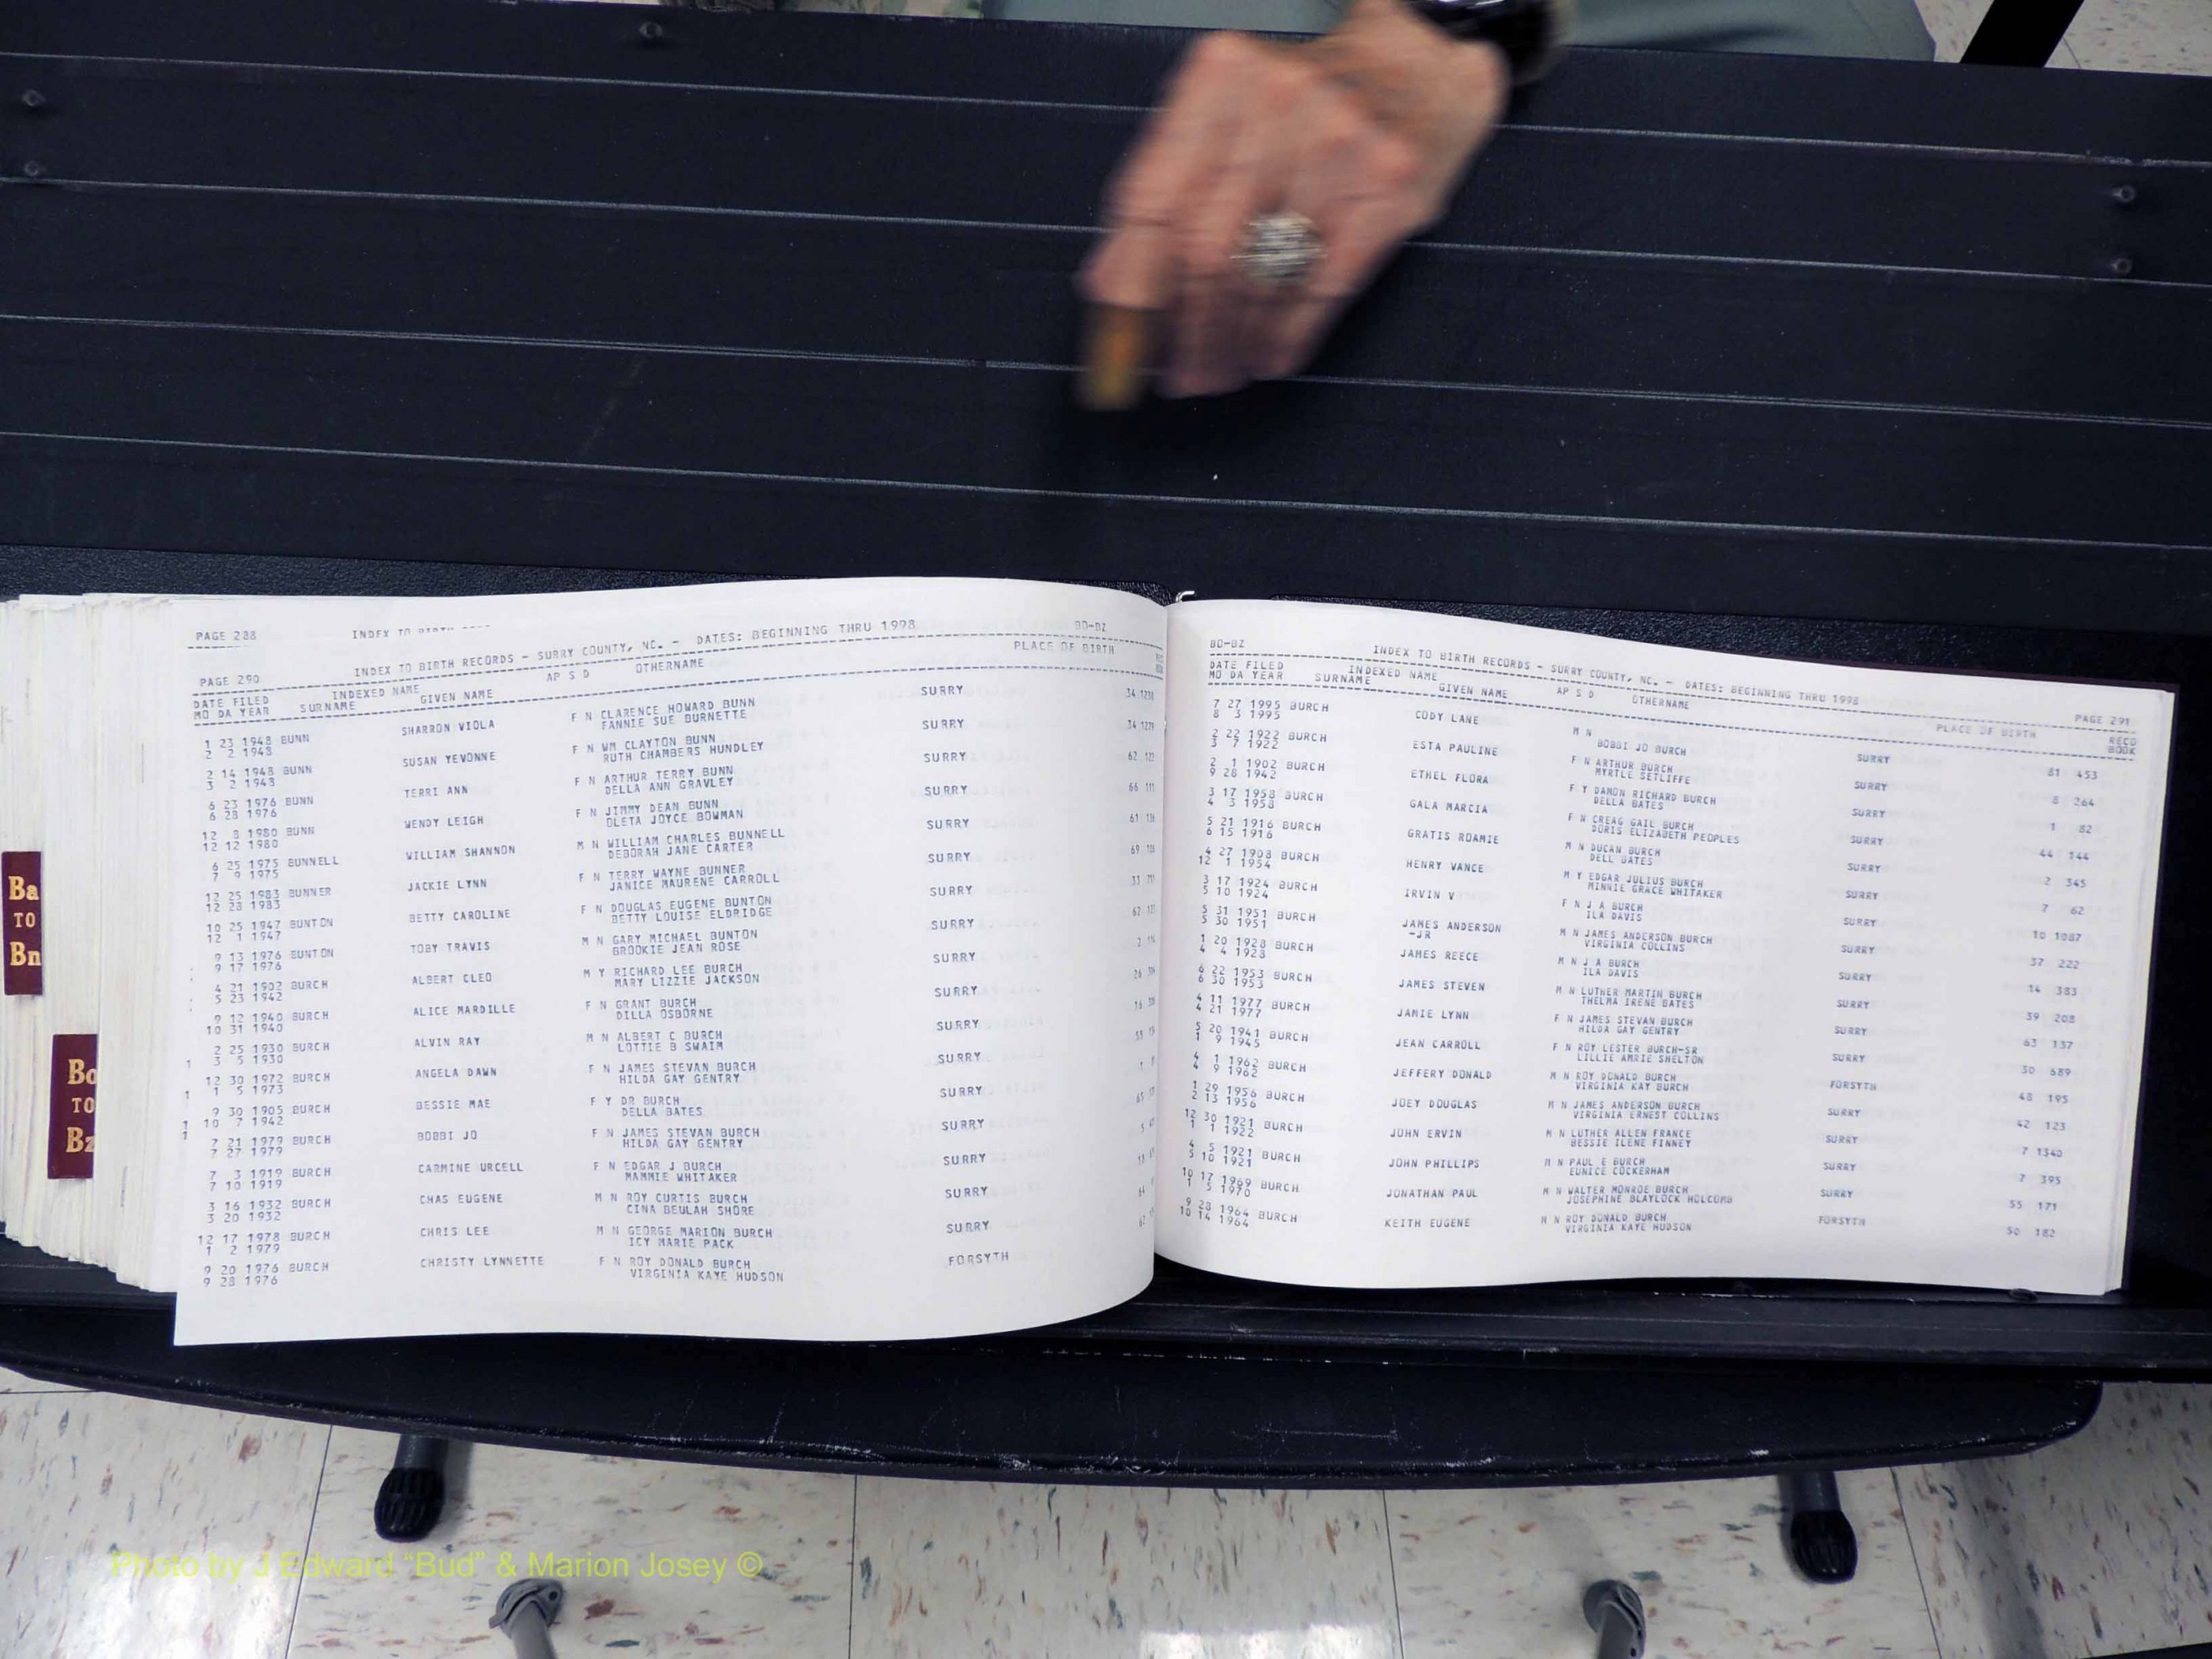 PAGE 288 INDEX TO BIRTH
PAGE 290 INDEX TO BIRTH RECORDS - SURRY COUNTY, NC. - DATES: BEGINNING THRU 1998 BO-BZ
DATE FILED INDEXED NAME AP S D OTHERNAME PLACE OF BIRTH
MO DA YEAR SURNAME GIVEN NAME
1 23 1948 BUNN SHARRON VIOLA F N CLARENCE HOWARD BUNN SURRY 34 1238
2 2 1948 FANNIE SUE BURNETTE
2 14 1948 BUNN SUSAN YEVONNE F N WM CLAYTON BUNN SURRY 34 1239
3 2 1948 RUTH CHAMBERS HUNDLEY
6 23 1976 BUNN TERRI ANN F N ARTHUR TERRY BUNN SURRY 62
6 28 1976 DELLA ANN GRAVLEY
12 8 1980 BUNN WENDY LEIGH F N JIMMY DEAN BUNN SURRY 66
12 12 1980 OLETA JOYCE BOWMAN
6 25 1975 BUNNELL WILLIAM SHANNON M N WILLIAM CHARLES BUNNELL SURRY 61
7 9 1975 DEBORAH JANE CARTER
12 25 1983 BUNNER JACKIE LYNN F N TERRY WAYNE BUNNER SURRY 69
12 28 1983 JANICE MAURENE CARROLL
10 25 1947 BUNTON BETTY CAROLINE F N DOUGLAS EUGENE BUNTON SURRY 33
12 1 1947 BETTY LOUISE ELDRIDGE
9 13 1976 BUNTON TOBY TRAVIS M N GARY MICHAEL BUNTON SURRY 62
9 17 1976 BROOKIE JEAN ROSE
4 21 1902 BURCH ALBERT CLEO M Y RICHARD LEE BURCH SURRY 2
5 23 1942 MARY LIZZIE JACKSON
9 12 1940 BURCH ALICE MARDILLE F N GRANT BURCH SURRY 26
10 31 1940 DILLA OSBORNE
2 25 1930 BURCH ALVIN RAY M N ALBERT C BURCH SURRY 16
3 5 1930 LOTTIE B SWAIM
12 30 1972 BURCH ANGELA DAWN F N JAMES STEVAN BURCH SURRY
1 5 1973 HILDA GAY GENTRY
9 30 1905 BURCH BESSIE MAE F Y DR BURCH SURRY
10 7 1942 DELLA BATES
7 21 1979 BURCH BOBBI JO F N JAMES STEVAN BURCH SURRY
7 27 1979 HILDA GAY GENTRY
7 3 1919 BURCH CARMINE URCELL F N EDGAR J BURCH SURRY
7 10 1919 MAMMIE WHITAKER
3 16 1932 BURCH CHAS EUGENE M N ROY CURTIS BURCH SURRY
3 20 1932 CINA BEULAH SHORE
12 17 1978 BURCH CHRIS LEE M N GEORGE MARION BURCH SURRY
1 2 1979 ICY MARIE PACK
9 20 1976 BURCH CHRISTY LYNNETTE F N ROY DONALD BURCH FORSYTH
9 28 1976 VIRGINIA KAYE HUDSON
BO-BZ INDEX TO BIRTH RECORDS - SURRY COUNTY, NC. - DATES: BEGINNING THRU 1998 PAGE 291
DATE FILED INDEXED NAME AP S D OTHERNAME PLACE OF BIRTH RECD
MO DA YEAR SURNAME GIVEN NAME BOOK
7 27 1995 BURCH CODY LANE M N SURRY 81 453
8 3 1995 BOBBI JO BURCH
2 22 1922 BURCH ESTA PAULINE F N ARTHUR BURCH SURRY 8 264
3 7 1922 MYRTLE SETLIFFE
2 1 1902 BURCH ETHEL FLORA F Y DAMON RICHARD BURCH SURRY 1 82
9 28 1942 DELLA BATES
3 17 1958 BURCH GALA MARCIA F N CREAG GAIL BURCH SURRY 44 144
4 3 1958 DORIS ELIZABETH PEOPLES
5 21 1916 BURCH GRATIS ROAMIE M N DUCAN BURCH SURRY 2 345
6 15 1916 DELL BATES
4 27 1908 BURCH HENRY VANCE M Y EDGAR JULIUS BURCH SURRY 7 62
12 1 1954 MINNIE GRACE WHITAKER
3 17 1924 BURCH IRVIN V F N J A BURCH SURRY 10 1087
5 10 1924 ILA DAVIS
5 31 1951 BURCH JAMES ANDERSON M N JAMES ANDERSON BURCH SURRY 37 222
5 30 1951 -JR VIRGINIA COLLINS
1 20 1928 BURCH JAMES REECE M N J A BURCH SURRY 14 383
4 4 1928 ILA DAVIS
6 22 1953 BURCH JAMES STEVEN M N LUTHER MARTIN BURCH SURRY 39 208
6 30 1953 THELMA IRENE BATES
4 11 1977 BURCH JAMIE LYNN F N JAMES STEVAN BURCH SURRY 63 137
4 21 1977 HILDA GAY GENTRY
5 20 1941 BURCH JEAN CARROLL F N ROY LESTER BURCH-SR SURRY 30 689
1 9 1945 LILLIE AMRIE SHELTON
4 1 1962 BURCH JEFFERY DONALD M N ROY DONALD BURCH FORSYTH 48 195
4 9 1962 VIRGINIA KAY BURCH
1 29 1956 BURCH JOEY DOUGLAS M N JAMES ANDERSON BURCH SURRY 42 123
2 13 1956 VIRGINIA ERNEST COLLINS
12 30 1921 BURCH JOHN ERVIN M N LUTHER ALLEN FRANCE SURRY 7 1340
1 1 1922 BESSIE ILENE FINNEY
4 5 1921 BURCH JOHN PHILLIPS M N PAUL E BURCH SURRY 7 395
5 10 1921 EUNICE COCKERHAM
10 17 1969 BURCH JONATHAN PAUL M N WALTER MONROE BURCH SURRY 55 171
1 5 1970 JOSEPHINE BLAYLOCK HOLCOMB
9 28 1964 BURCH KEITH EUGENE M N ROY DONALD BURCH FORSYTH 50 182
10 14 1964 VIRGINIA KAYE HUDSON
Ba
TO
Bn
Bo
TO
Bz
Photo by J Edward “Bud” & Marion Josey ©